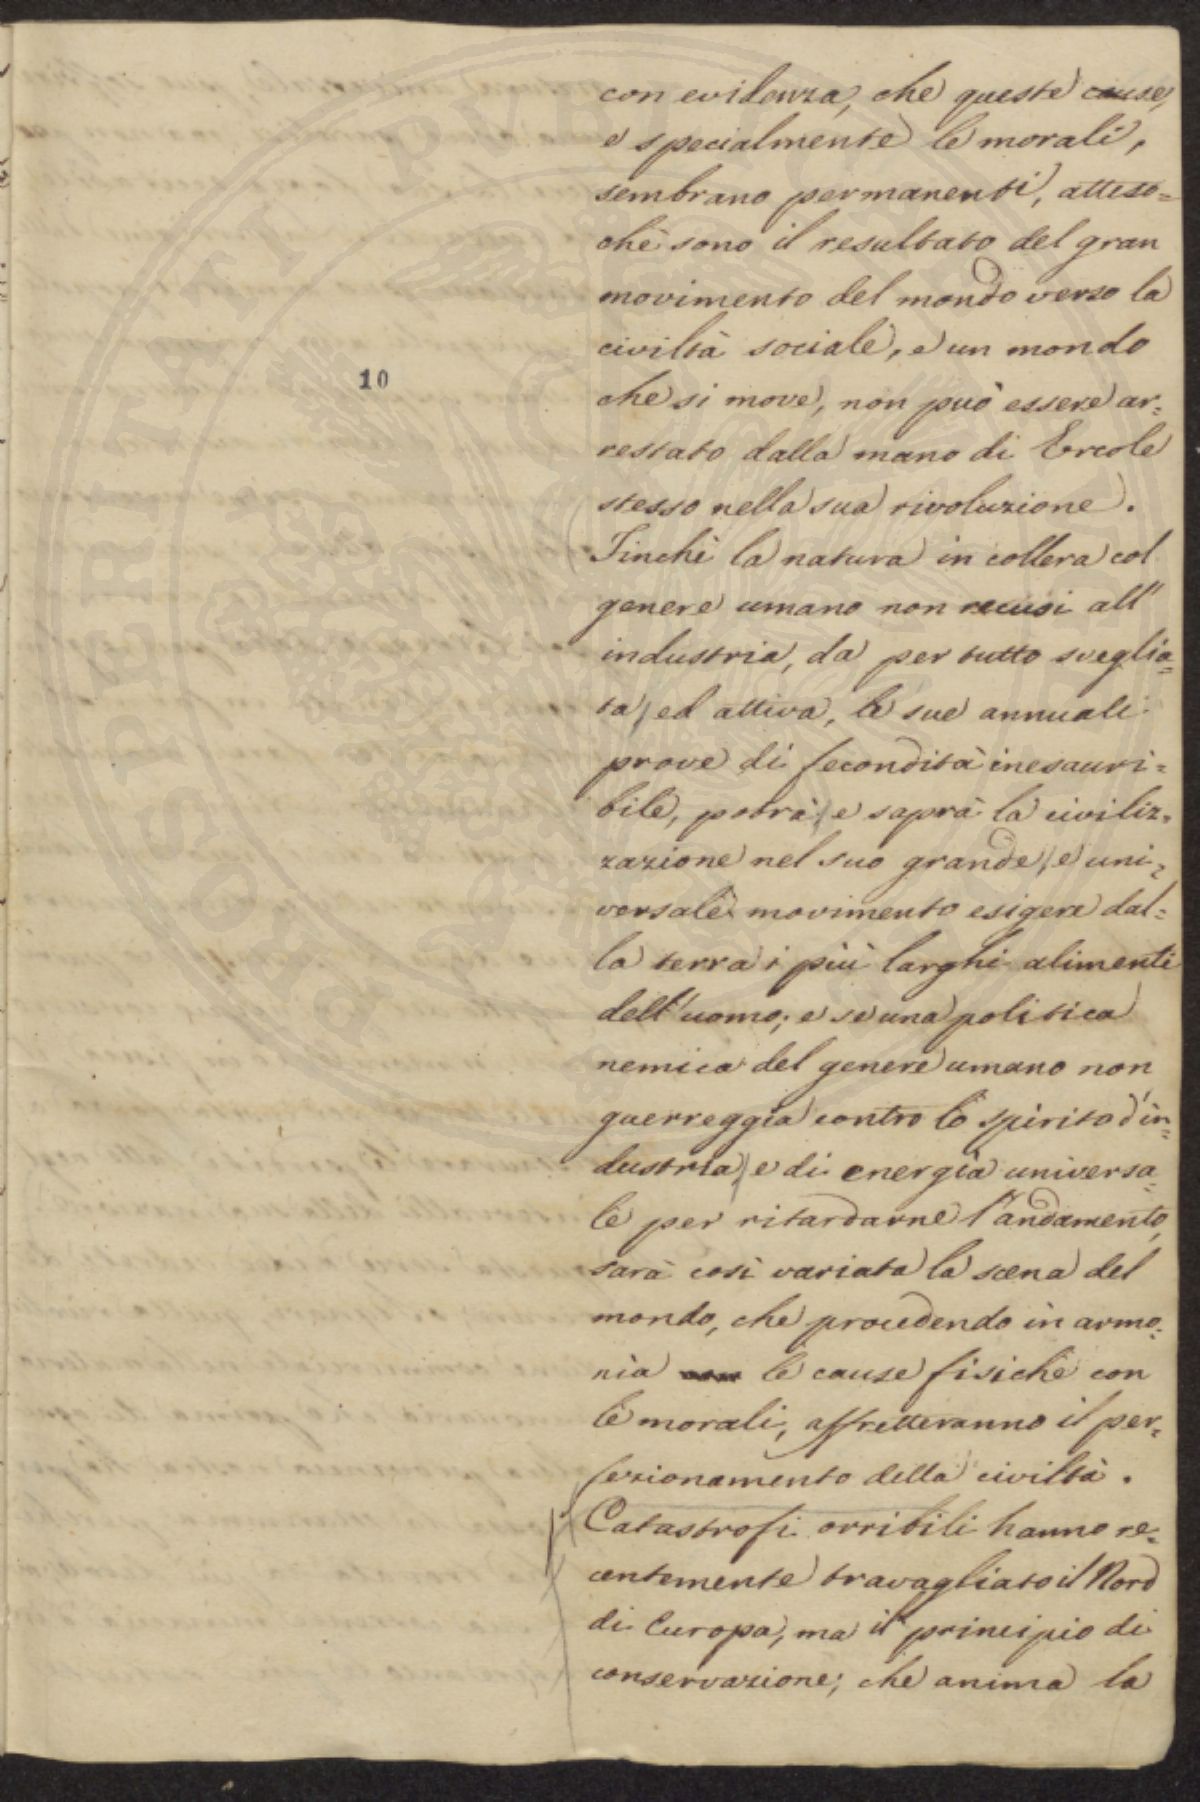 con evidenza, che queste cause,
e specialmente le morali,
sembrano permanenti, atteso=
chè sono il resultato del gran
movimento del mondo verso la
civiltà sociale, e un mondo
che si move, non può essere ar=
restato dalla mano di Ercole
stesso nella sua rivoluzione.
10
Finchè la natura in collera col
genere umano non recusi all'
industria, da per tutto sveglia=
ta, ed attiva, le sue annuali
prove di fecondità inesauri=
bile, potrà, e saprà la civiliz=
zazione nel suo grande, e uni=
versale movimento esigere dal=
la terra i più larghi alimenti
dell'uomo; e se una politica
nemica del genere umano non
guerreggia contro lo spirito d'in=
dustria, e di energia universa=
le per ritardarne l'andamento,
sarà così variata la scena del
mondo, che procedendo in armo=
nia le cause fisiche con
le morali, affretteranno il per=
fezionamento della civiltà.
Catastrofi orribili hanno re=
centemente travagliato il Nord
di Europa, ma il principio di
conservazione; che anima la
PROSPERITATI PVBLICAE